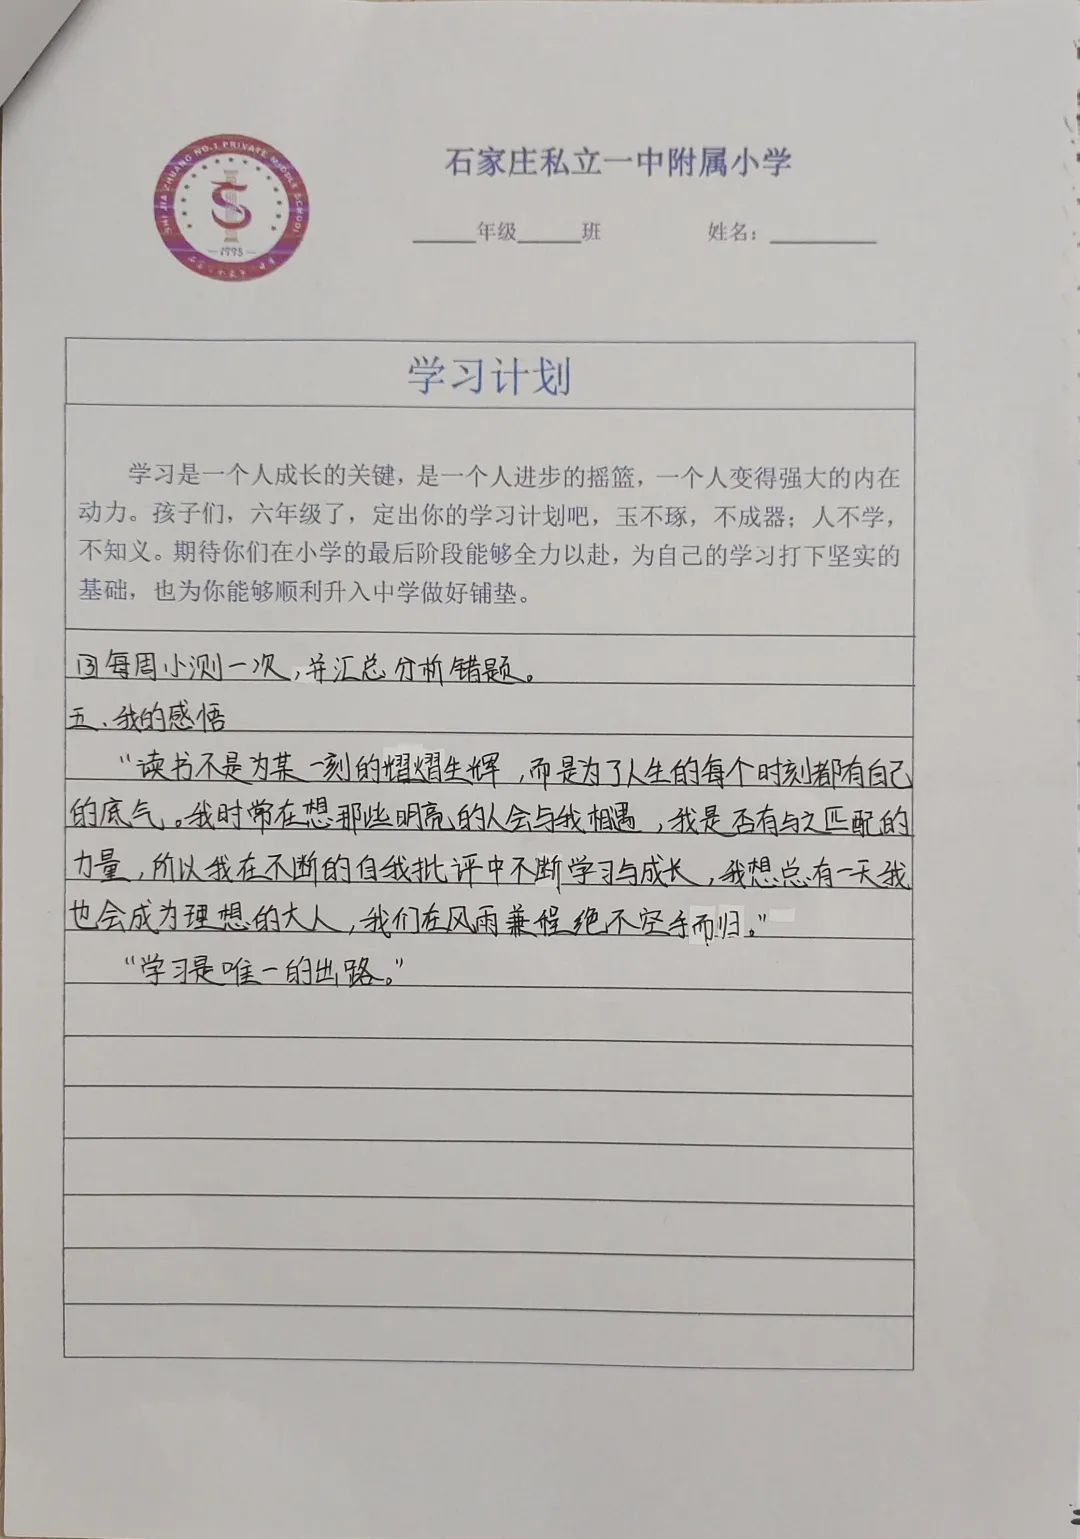 SHI JIA ZHUANG NO.1 PRIVATE MIDDLE SCHOOL
1995
石家庄私立一中附属小学
_____年级_____班 姓名：________
学习计划
学习是一个人成长的关键，是一个人进步的摇篮，一个人变得强大的内在
动力。孩子们，六年级了，定出你的学习计划吧，玉不琢，不成器；人不学，
不知义。期待你们在小学的最后阶段能够全力以赴，为自己的学习打下坚实的
基础，也为你能够顺利升入中学做好铺垫。
③每周小测一次，并汇总分析错题。
五、我的感悟
“读书不是为某一刻的熠熠生辉，而是为了人生的每个时刻都有自己
的底气。我时常在想那些明亮的人会与我相遇，我是否有与之匹配的
力量，所以我在不断的自我批评中不断学习与成长，我想总有一天我
也会成为理想的大人，我们在风雨兼程绝不空手而归。”
“学习是唯一的出路。”